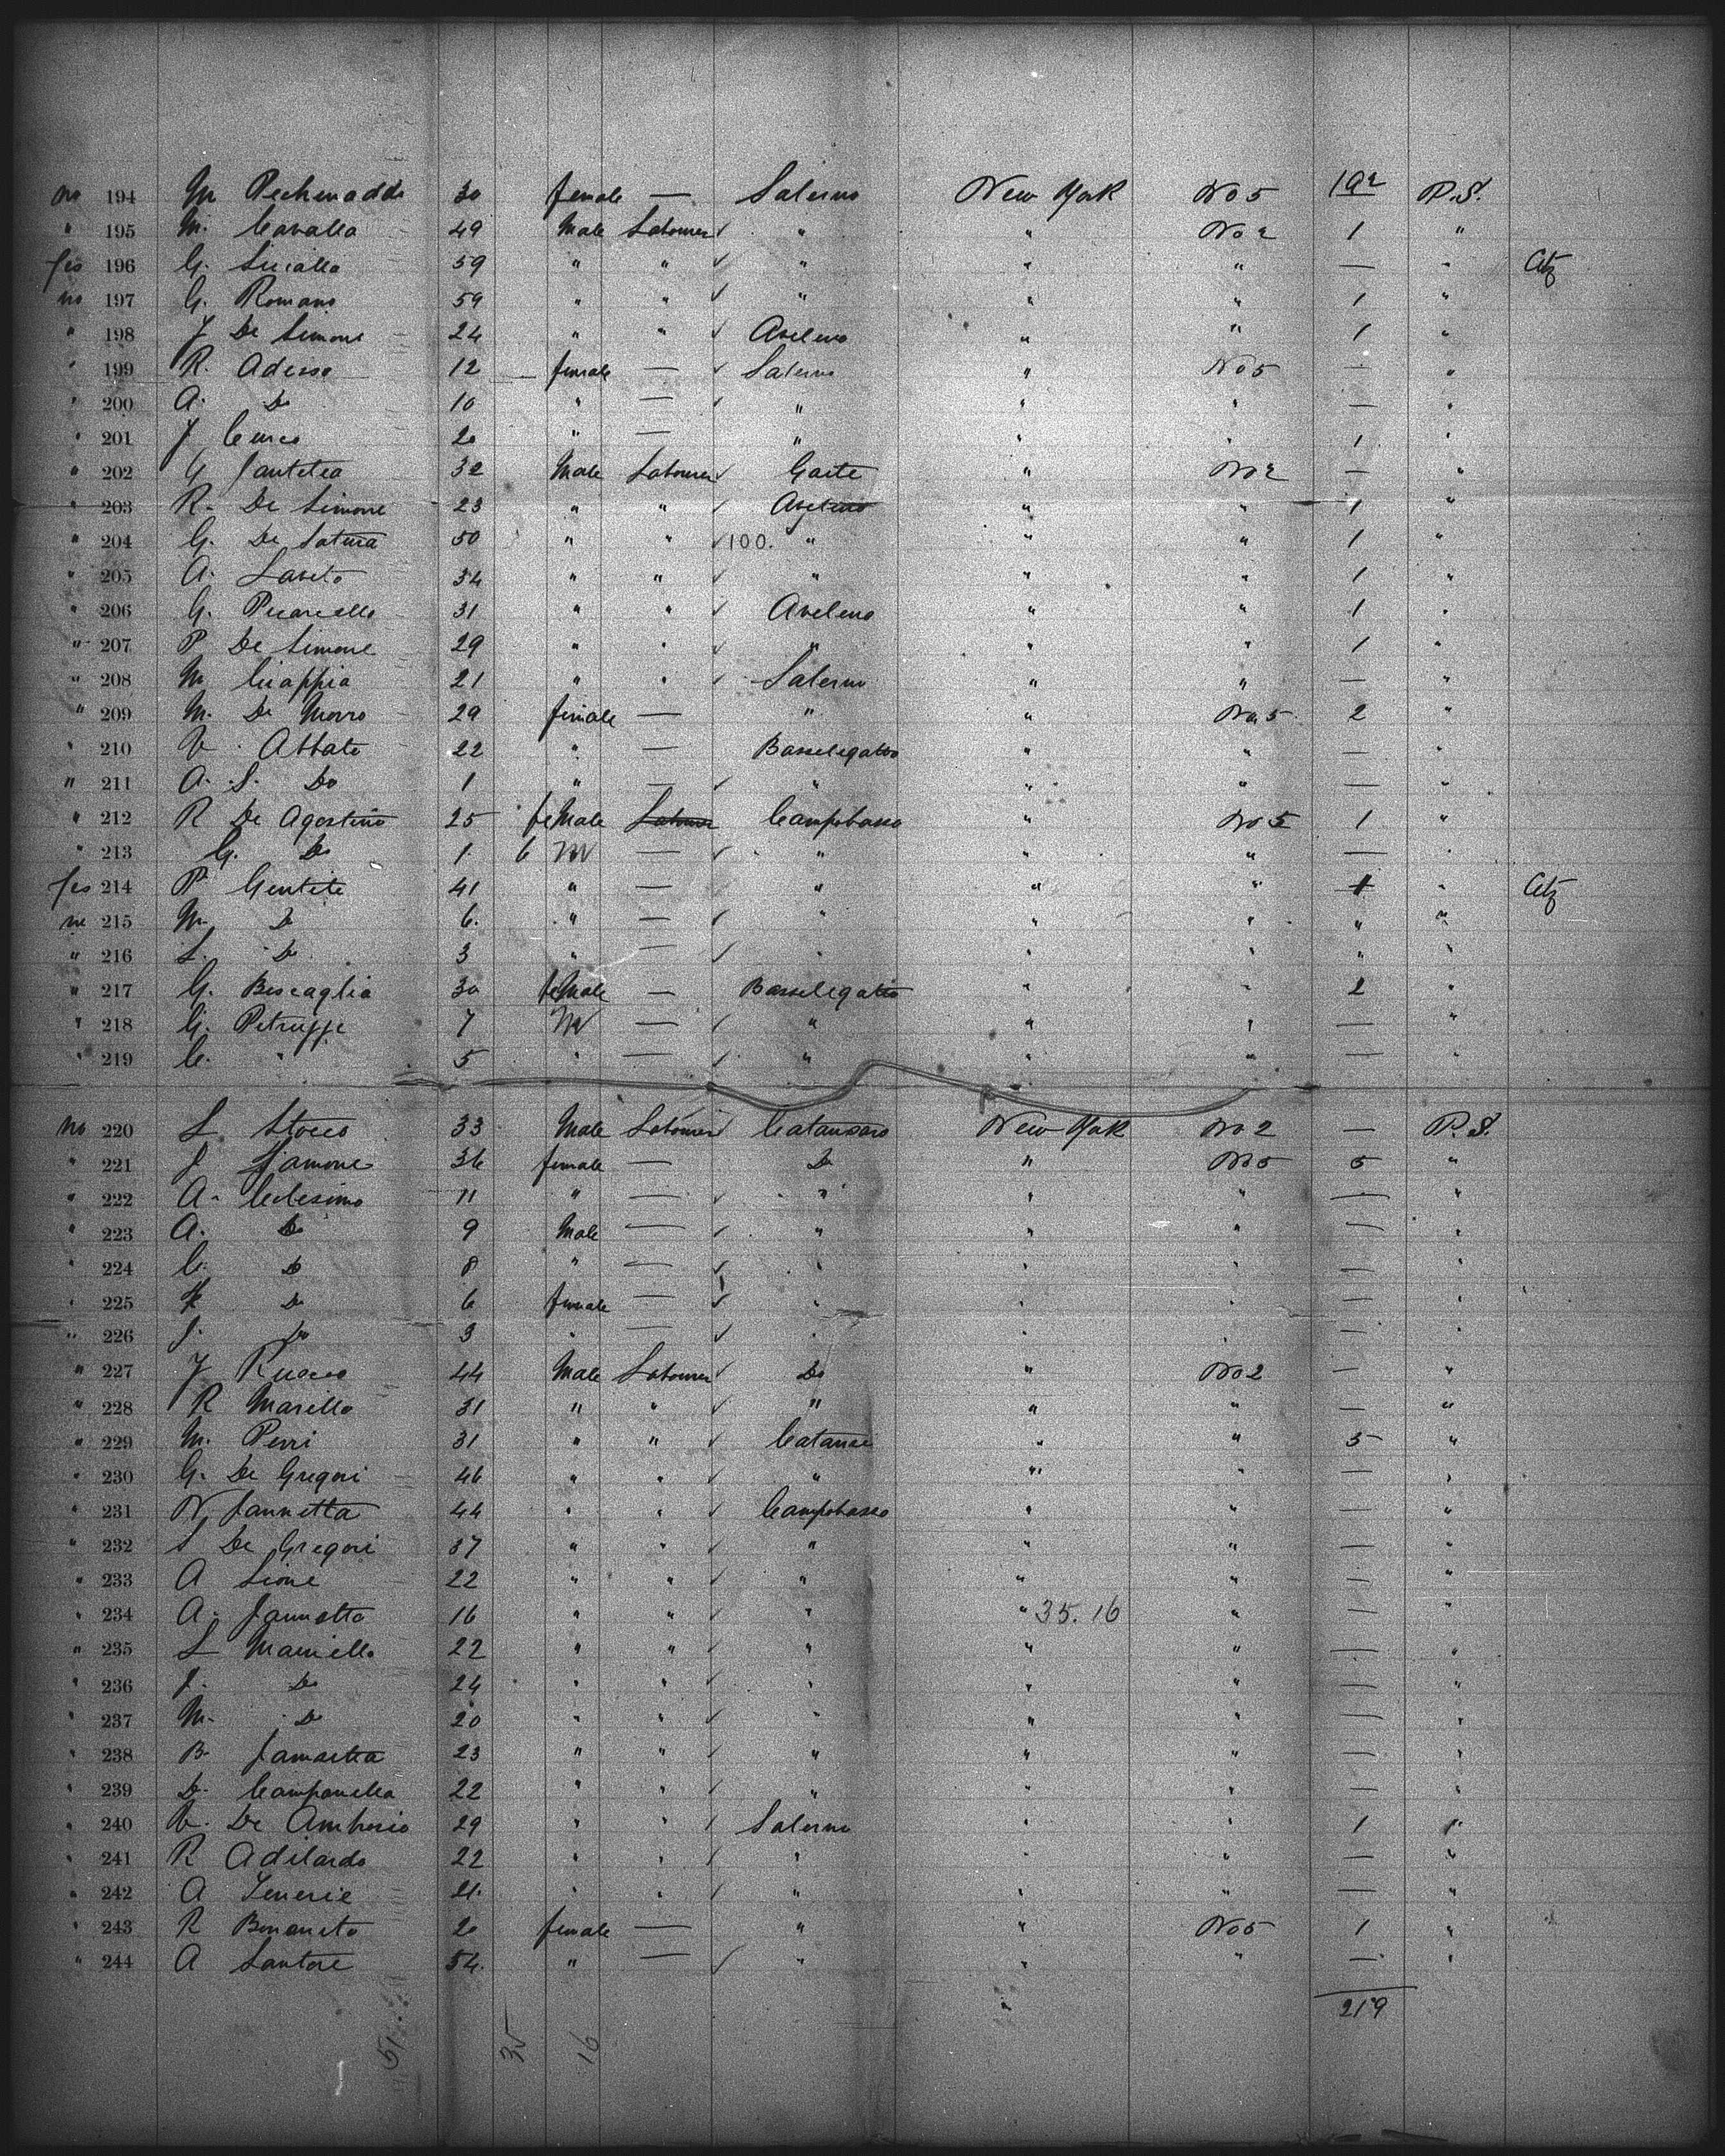 no 194 M Pechmadde 30 female — Salerno New York No 5 192 P.S.
" 195 M. Cavalla 49 Male Labourer ✓ " " No 2 1 "
yes 196 G. Sicialla 59 " " ✓ " " " — " Ctz
no 197 G. Romano 59 " " ✓ " " " 1 "
" 198 J De Simone 24 " " ✓ Avelino " " 1 "
" 199 R. Adesso 12 female — ✓ Salerno " No 5 — "
" 200 A. Do 10 " — ✓ " " " — "
" 201 J Curco 20 " — " " " 1 "
" 202 G Jantetea 32 Male Labourer ✓ Gaete " No 2 — "
" 203 R. De Simone 23 " " ✓ Avelino " " 1 "
" 204 G. De Satura 50 " " ✓ 100. " " " 1 "
" 205 A. Saseto 34 " " ✓ " " " 1 "
" 206 G. Picarello 31 " " ✓ Avelino " " 1 "
" 207 P De Simone 29 " " ✓ " " " 1 "
" 208 M Ciappia 21 " " ✓ Salerno " " — "
" 209 M. De Morro 29 female — " " No 5 2 "
" 210 V. Abbate 22 " — Basselegatto " " — "
" 211 A. S. Do 1 " — ✓ " " " — "
" 212 R De Agostino 25 feMale Labourer Campobasso " No 5 1 "
" 213 G. Do 1. 6 M — ✓ " " " — "
yes 214 P. Gentile 41 " — " " " 1 " Ctz
no 215 M. Do 6. " — ✓ " " " " "
" 216 L. Do 3 " — ✓ " " " " "
" 217 G. Bescaglia 30 feMale — Basselegatto " " 2 "
" 218 G. Petruzze 7 M — ✓ " " " — "
" 219 C. " 5 " — ✓ " " " — "
no 220 L Stocco 33 Male Labourer ✓ Catanzaro New York No 2 — P.S.
" 221 J. Jamone 36 female — Do " No 5 5 "
" 222 A. Celesimo 11 " — ✓ " " " — "
" 223 A. Do 9 Male — ✓ " " " — "
" 224 C. Do 8 " — ✓ " " " — "
" 225 F. Do 6 female — ✓ " " " — "
" 226 J. Do 3 " — ✓ " " " — "
" 227 J Ruoco 44 Male Labourer ✓ Do " No 2 — "
" 228 R Marillo 31 " " ✓ " " " — "
" 229 M. Perri 31 " " ✓ Catanze " " 5 "
" 230 G. De Gregori 46 " " ✓ " " " — "
" 231 N. Jannetta 44 " " ✓ Campobasso " " — "
" 232 S De Gregori 37 " " ✓ " " " — "
" 233 A Sione 22 " " ✓ " " " — "
" 234 A. Jannetta 16 " " ✓ " " 35. 16 " — "
" 235 L Mainello 22 " " ✓ " " " — "
" 236 J. Do 24 " " ✓ " " " — "
" 237 M. Do 20 " " ✓ " " " — "
" 238 B. Jamartea 23 " " ✓ " " " — "
" 239 D. Campanella 22 " " ✓ " " " — "
" 240 V. De Ambrosio 29 " " ✓ Salerno " " 1 "
" 241 R Adilardo 22 " " ✓ " " " — "
" 242 A Tenerie 21. " " ✓ " " " — "
" 243 R Bonaneto 20 female — " " No 5 1 "
" 244 A Santore 54. " — ✓ " " " — "
219
51 35 16